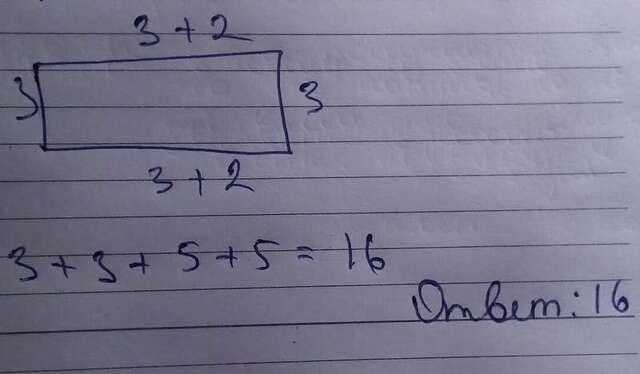 3 + 2
3 3
3 + 2
3 + 3 + 5 + 5 = 16
Ответ: 16